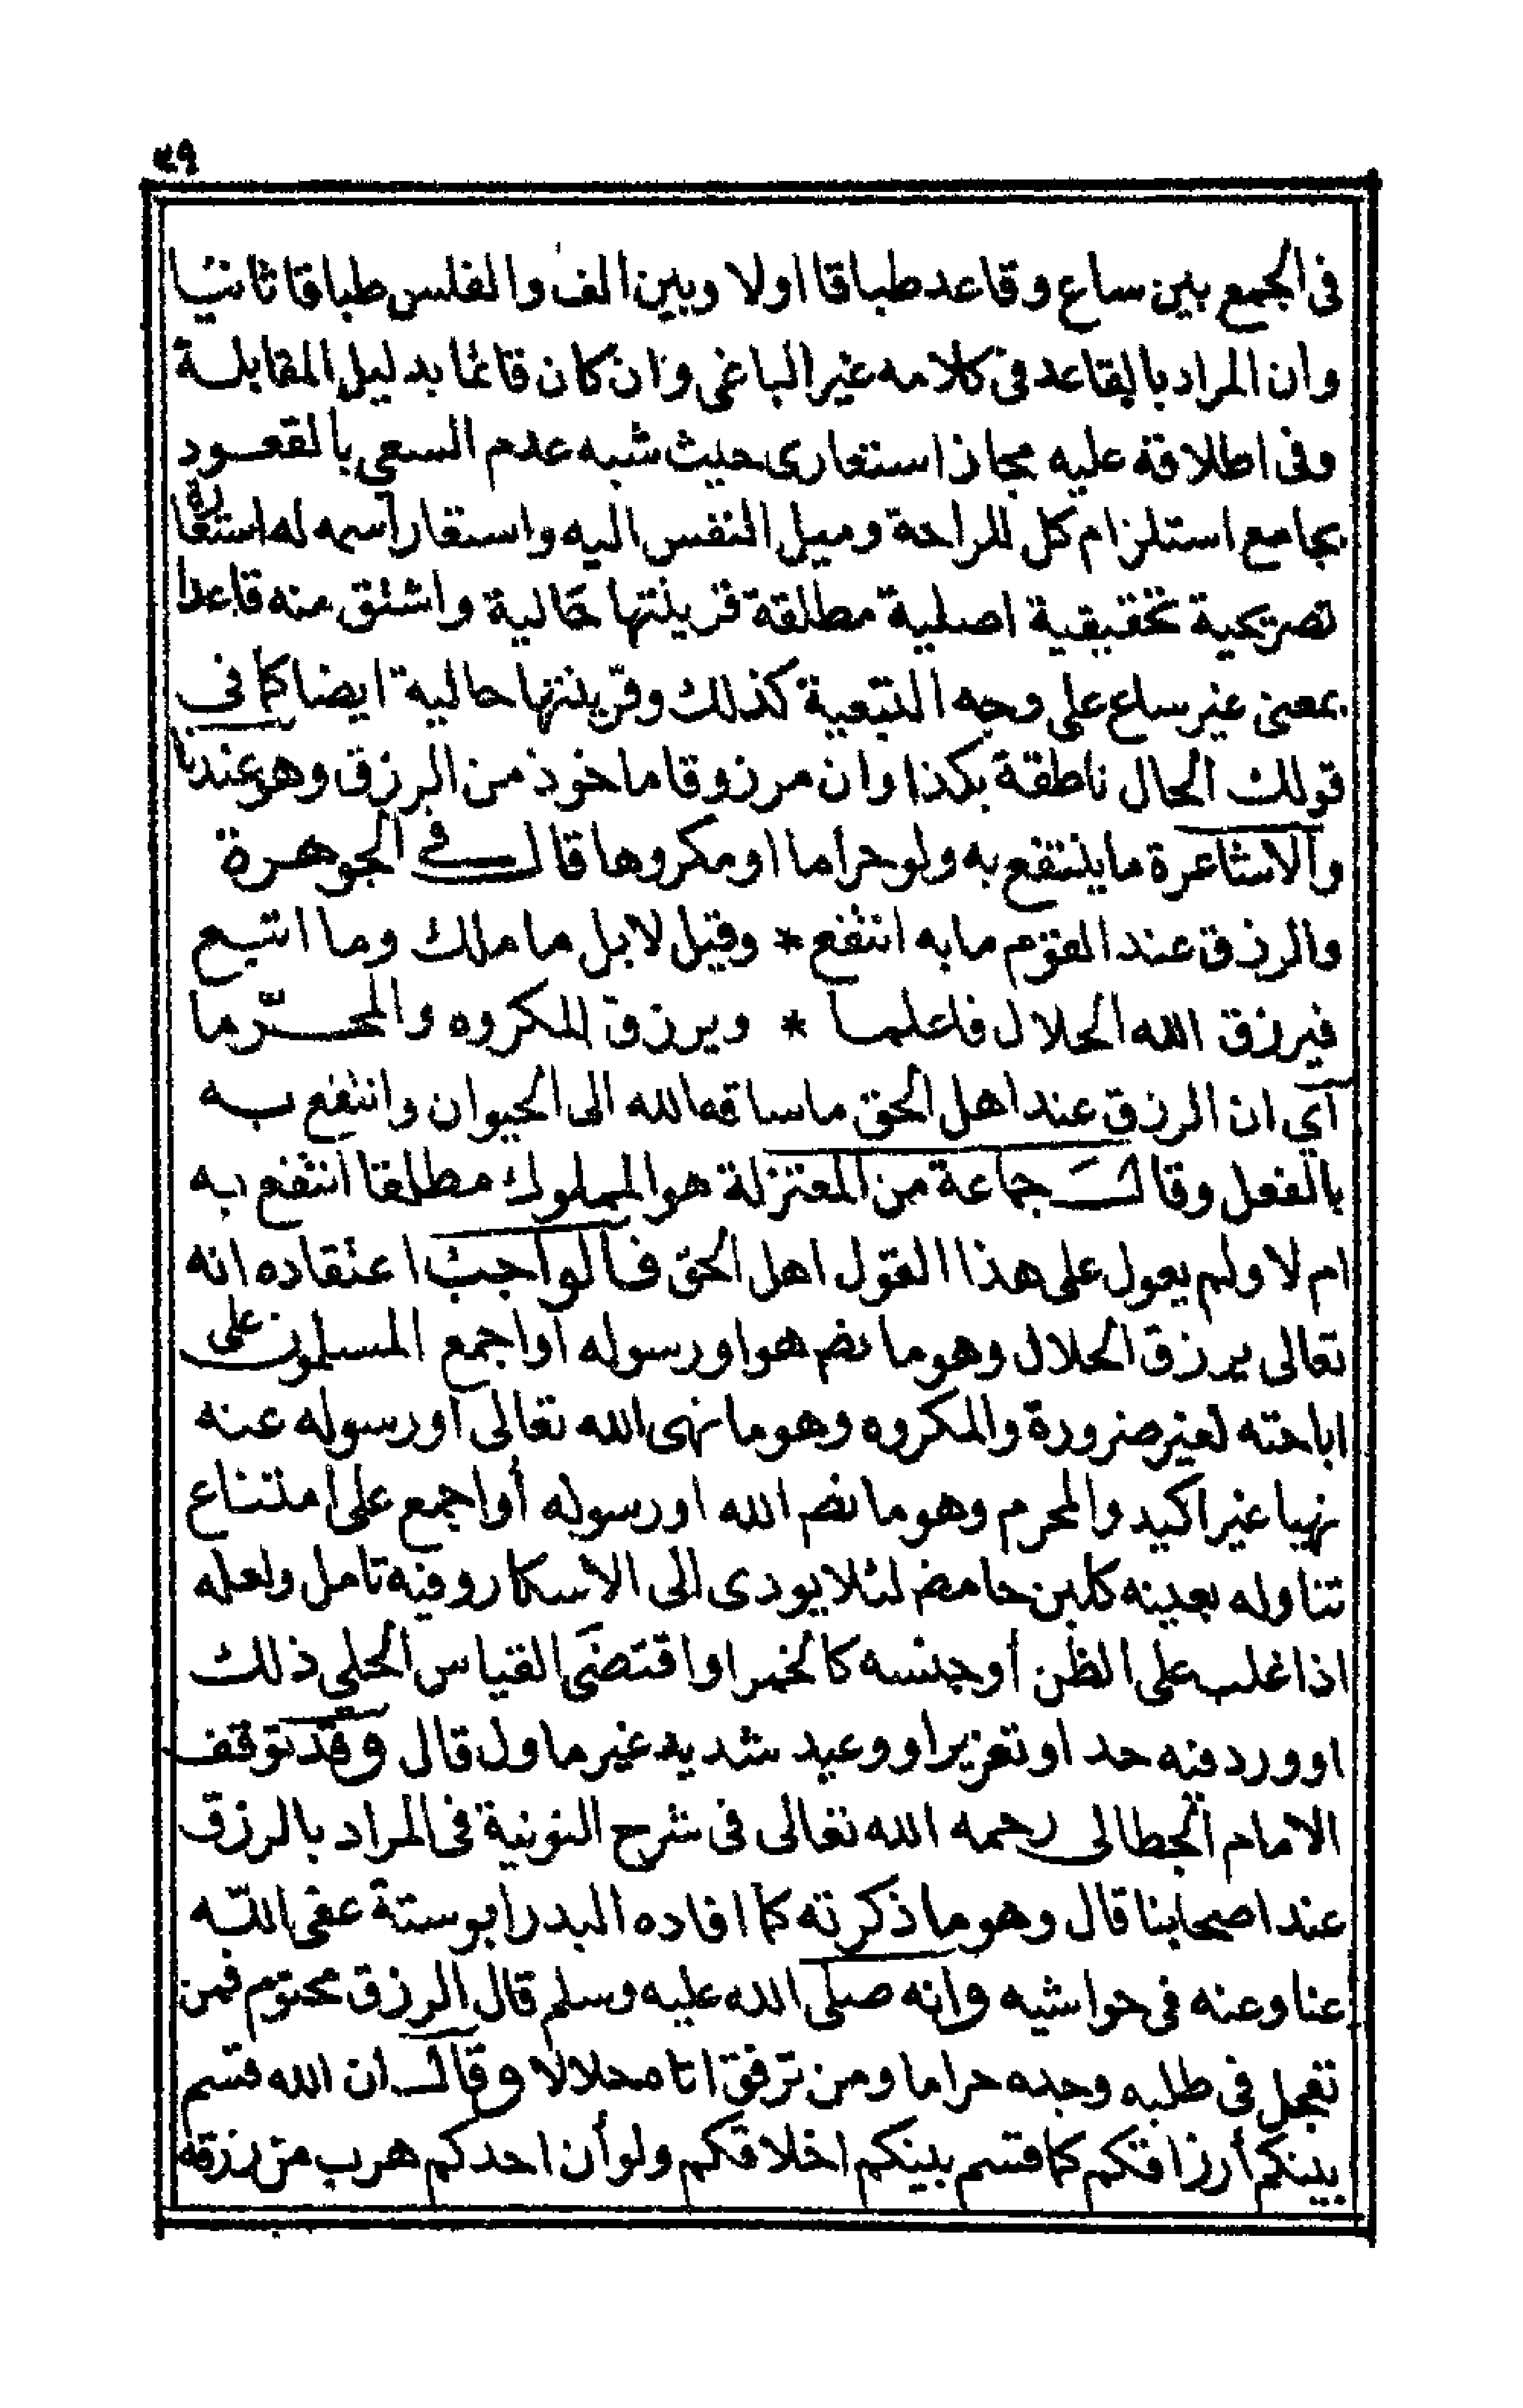 ٥٩
فى الجمع بين ساع وقاعد طباقا اولا وبين الف والفلس طباقا ثانيا
وان المراد بالقاعد فى كلامه غير الباغى وان كان قائما بدليل المقابلة
وفى اطلاقه عليه مجاز استعارى حيث شبه عدم السعى بالقعود
بجامع استلزام كل للراحة وميل النفس اليه واستعار اسمه له استعارة
تصريحية تحقيقية اصلية مطلقة قرينتها حالية واشتق منه قاعدا
بمعنى غير ساع على وجه التبعية كذلك وقرينتها حالية ايضا كما فى
قولك الحال ناطقة بكذا وان مرزوقا ماخوذ من الرزق وهو عندنا
والاشاعرة ما ينتفع به ولو حراما او مكروها قال فى الجوهرة
والرزق عند القوم ما به انتفع * وقيل لا بل ما ملك وما اتبع
فيرزق الله الحلال فاعلما * ويرزق المكروه والمحرّما
اي ان الرزق عند اهل الحق ما ساقه الله الى الحيوان وانتفع به
بالفعل وقالت جماعة من المعتزلة هو المملوك مطلقا انتفع به
ام لا ولم يعول على هذا القول اهل الحق فالواجب اعتقاده انه
تعالى يرزق الحلال وهو ما نص هو او رسوله او اجمع المسلمون على
اباحته لغير ضرورة والمكروه وهو ما نهى الله تعالى او رسوله عنه
نهيا غير اكيد والمحرم وهو ما نص الله او رسوله أو اجمع على امتناع
تناوله بعينه كلبن حامض لئلا يودى الى الاسكار وفيه تامل ولعله
اذا غلب على الظن أو جنسه كالخمر او اقتضى القياس الجلي ذلك
او ورد فيه حد او تعزير او وعيد شديد غير ماول قال وقد توقف
الامام رحمه الله تعالى فى شرح النونية فى المراد بالرزق
عند اصحابنا قال وهو ما ذكرته كما افاده البدر ابو ستة عفى اللّه
عنا وعنه فى حواشيه وانه صلى الله عليه وسلم قال الرزق محتوم فمن
تعجل فى طلبه وجده حراما ومن ترفق اتاه حلالا وقال ان الله قسم
بينكم أرزاقكم كما قسم بينكم اخلاقكم ولو أن احدكم هرب من رزقه